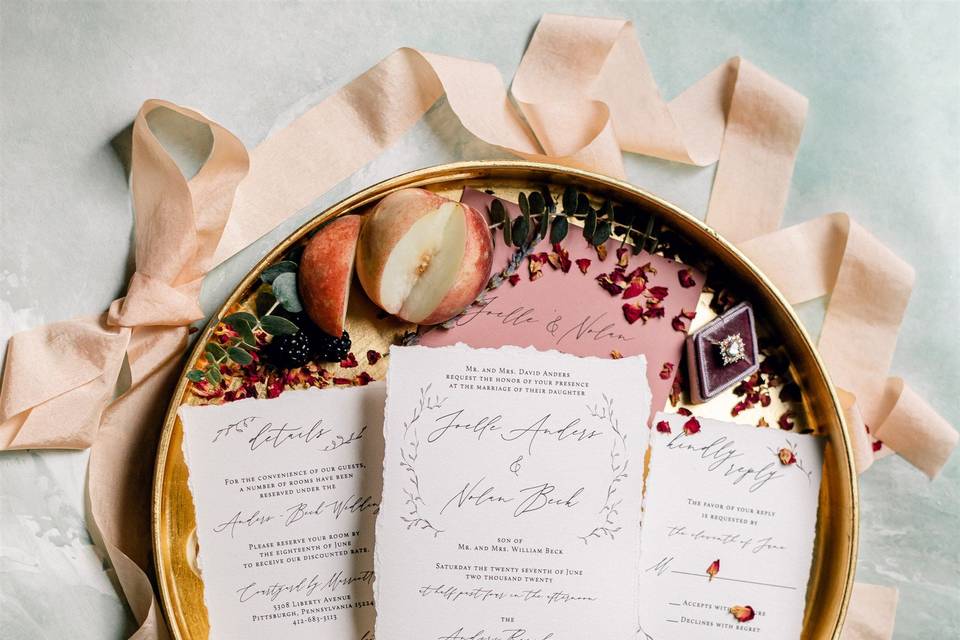 Joelle & Nolan
Mr. and Mrs. David Anders
request the honor of your presence
at the marriage of their daughter
Joelle Anders
&
Nolan Beck
son of
Mr. and Mrs. William Beck
Saturday the twenty seventh of June
two thousand twenty
at half past four in the afternoon
the
details
For the convenience of our guests,
a number of rooms have been
reserved under the
Anders - Beck Wedding
Please reserve your room by
the eighteenth of June
to receive our discounted rate.
Courtyard by Marriott
5308 Liberty Avenue
Pittsburgh, Pennsylvania 15224
412-683-3113
kindly reply
The favor of your reply
is requested by
the eleventh of June
M
Accepts with
Declines with regret